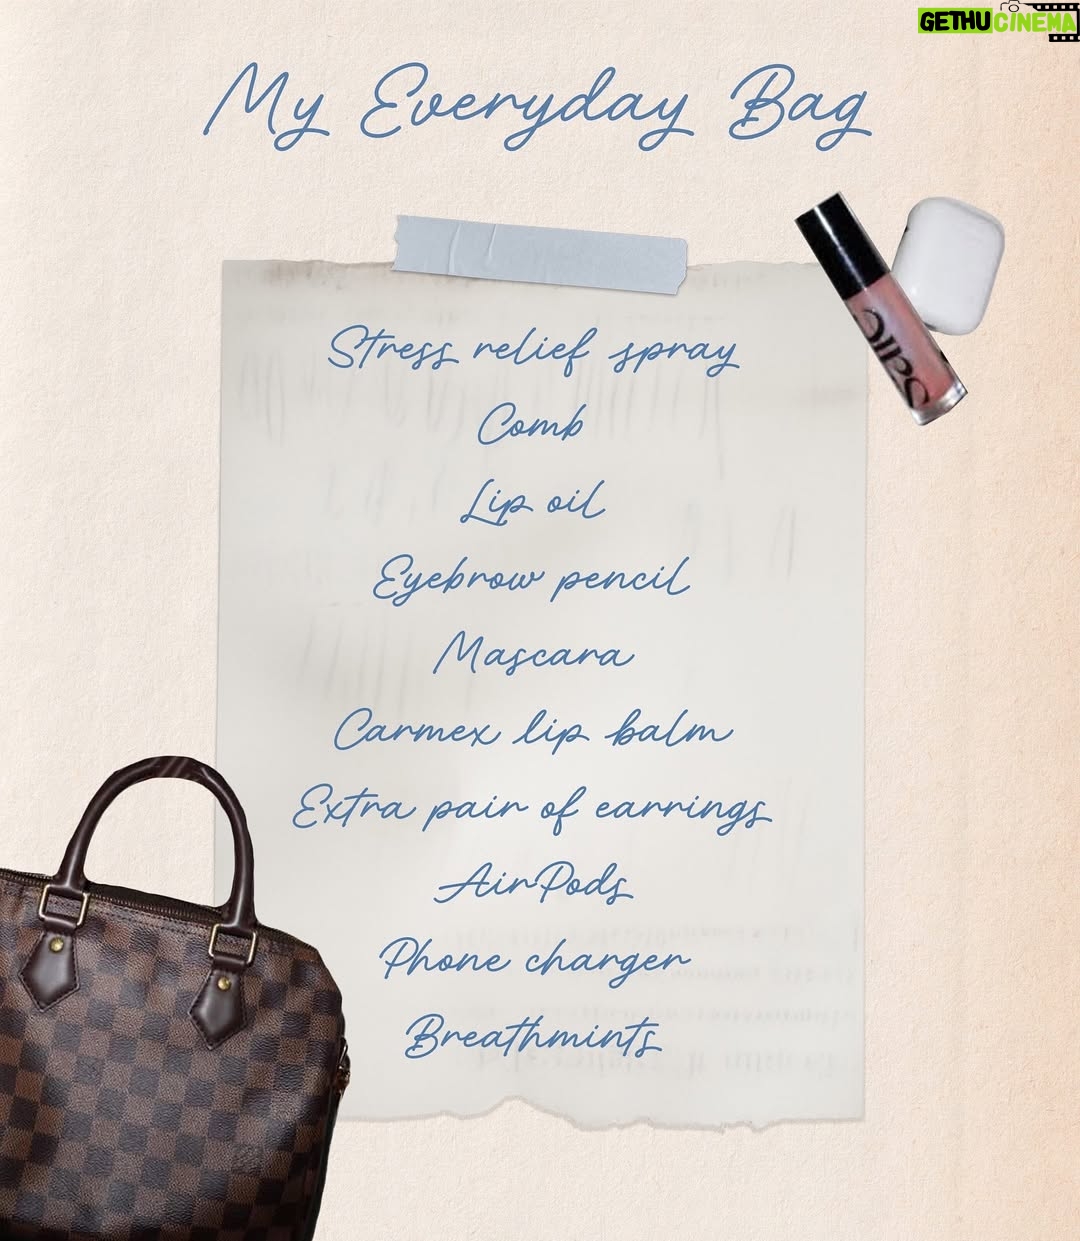 GETHUCINEMA
My Everyday Bag
Stress relief spray
Comb
Lip oil
Eyebrow pencil
Mascara
Carmex lip balm
Extra pair of earrings
AirPods
Phone charger
Breathmints